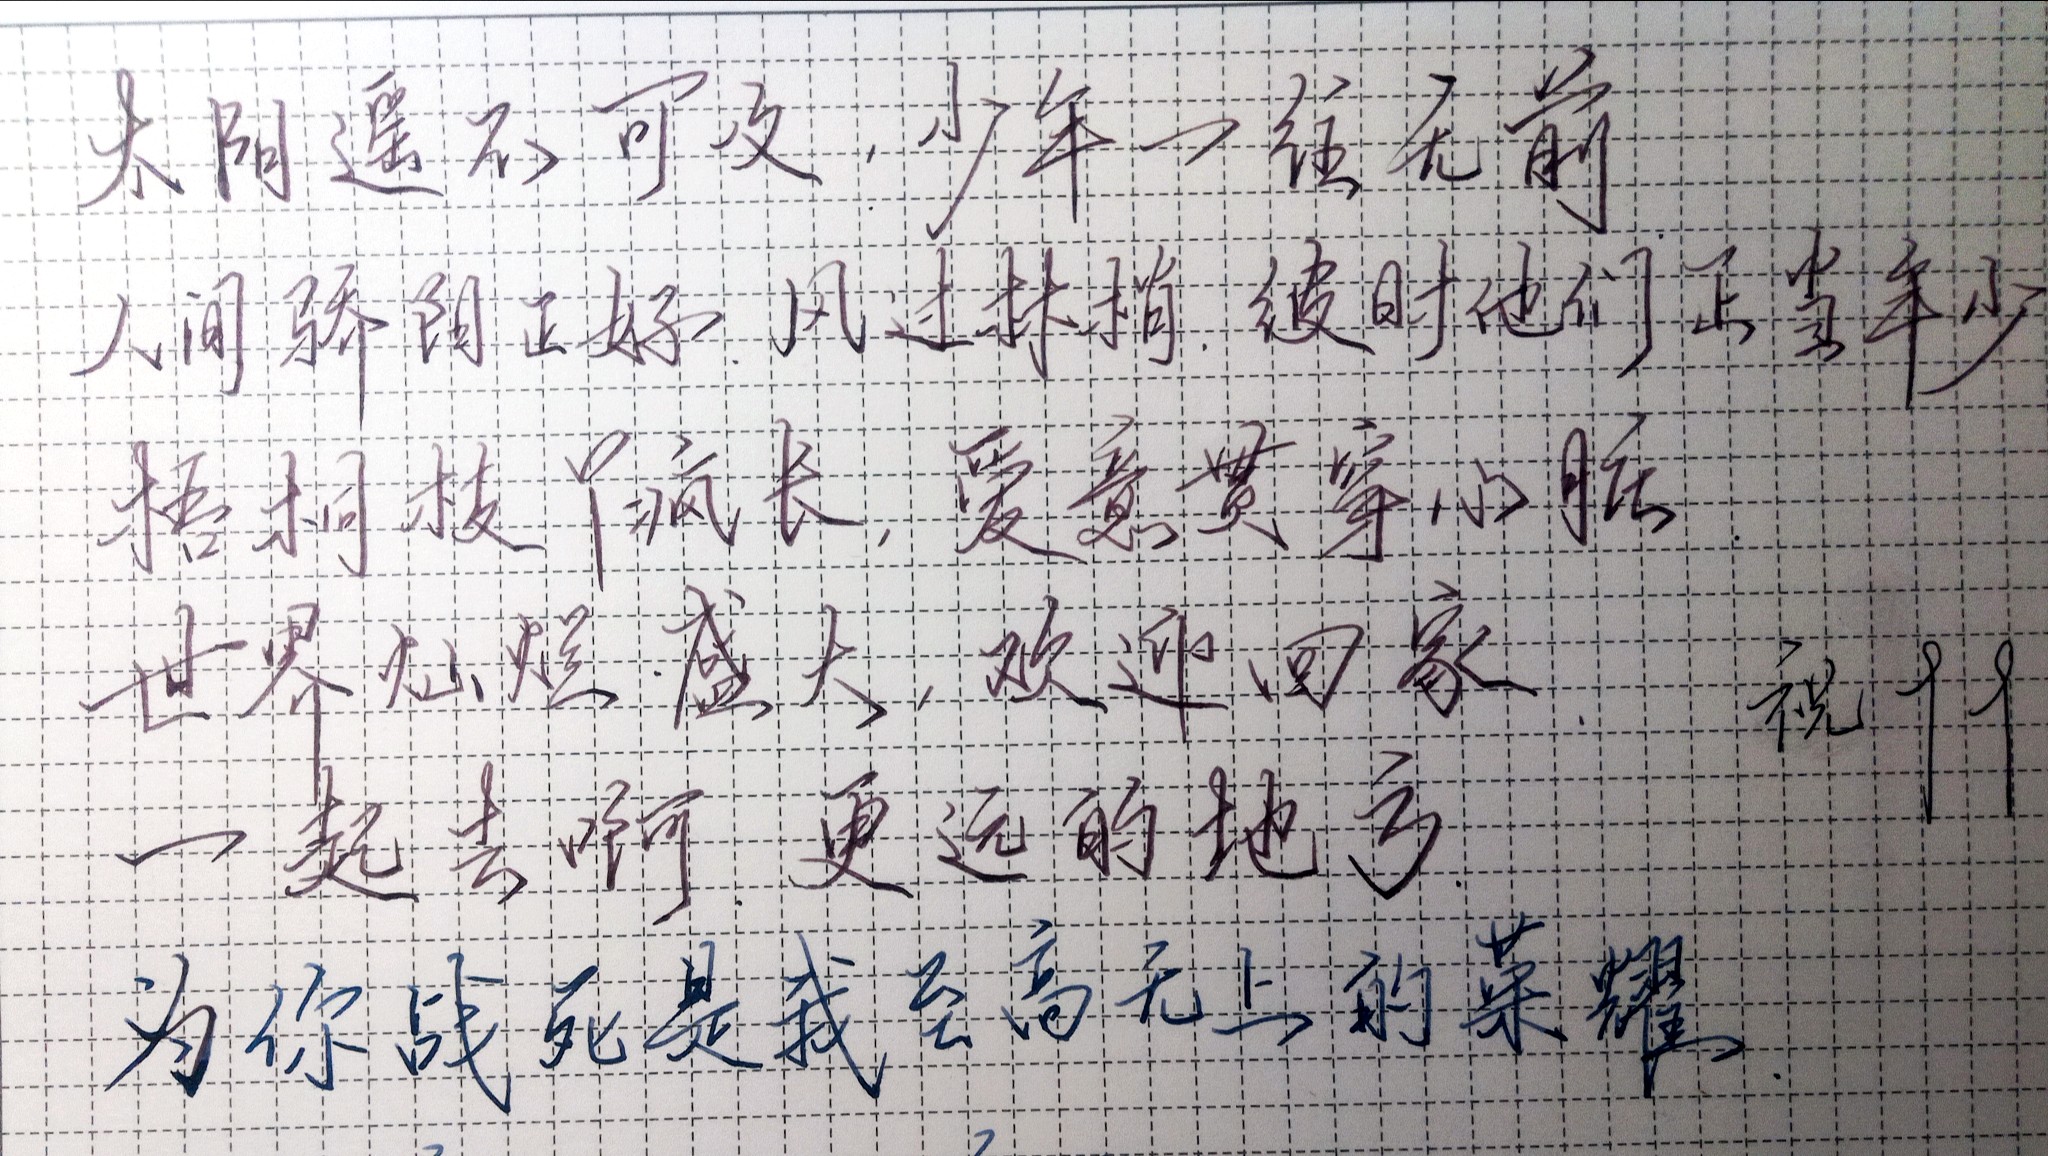 太阳遥不可及,少年一往无前
人间骄阳正好.风过林梢.彼时他们正当年少
梧桐枝丫疯长,爱意贯穿心脏.
世界灿烂盛大,欢迎回家.
祝
一起去啊.更远的地方.
为你战死是我至高无上的荣耀.